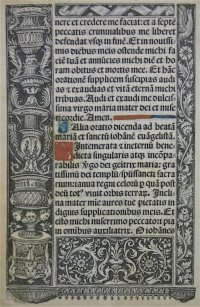 nere et credere me faciat: et a septē
peccatis criminalibus me liberet
defendat vsqȝ in finē. Et in nouissi-
mis diebus meis ostende michi fa-
ciē tuā et annūcies michi diē et ho-
ram obitus et mortis mee. Et hāc
orationē supplicem suscipias audi-
as z exaudias et vitā eternā michi
tribuas. Audi et exaudi me dulcissi-
ma virgo maria mater dei et mise-
ricordie. Amen.
Alia oratio dicenda ad beatā
mariā et sanctū iohānē euāgelistā.
Intemerata z ineternū bene-
dicta singularis atqȝ incōpa-
rabilis v̄go dei genitrix maria: gra-
tissimū dei templū: spūssancti sacra
riū: ianua regni celorū: p quā post
deū tot⁹ viuit orbis terraȝ. Incli-
na mater mie aures tue pietatis in
dignis supplicationibus meis. Et e-
sto michi miserrimo peccatori pia
in omnibus auxiliatrix. O iohānes